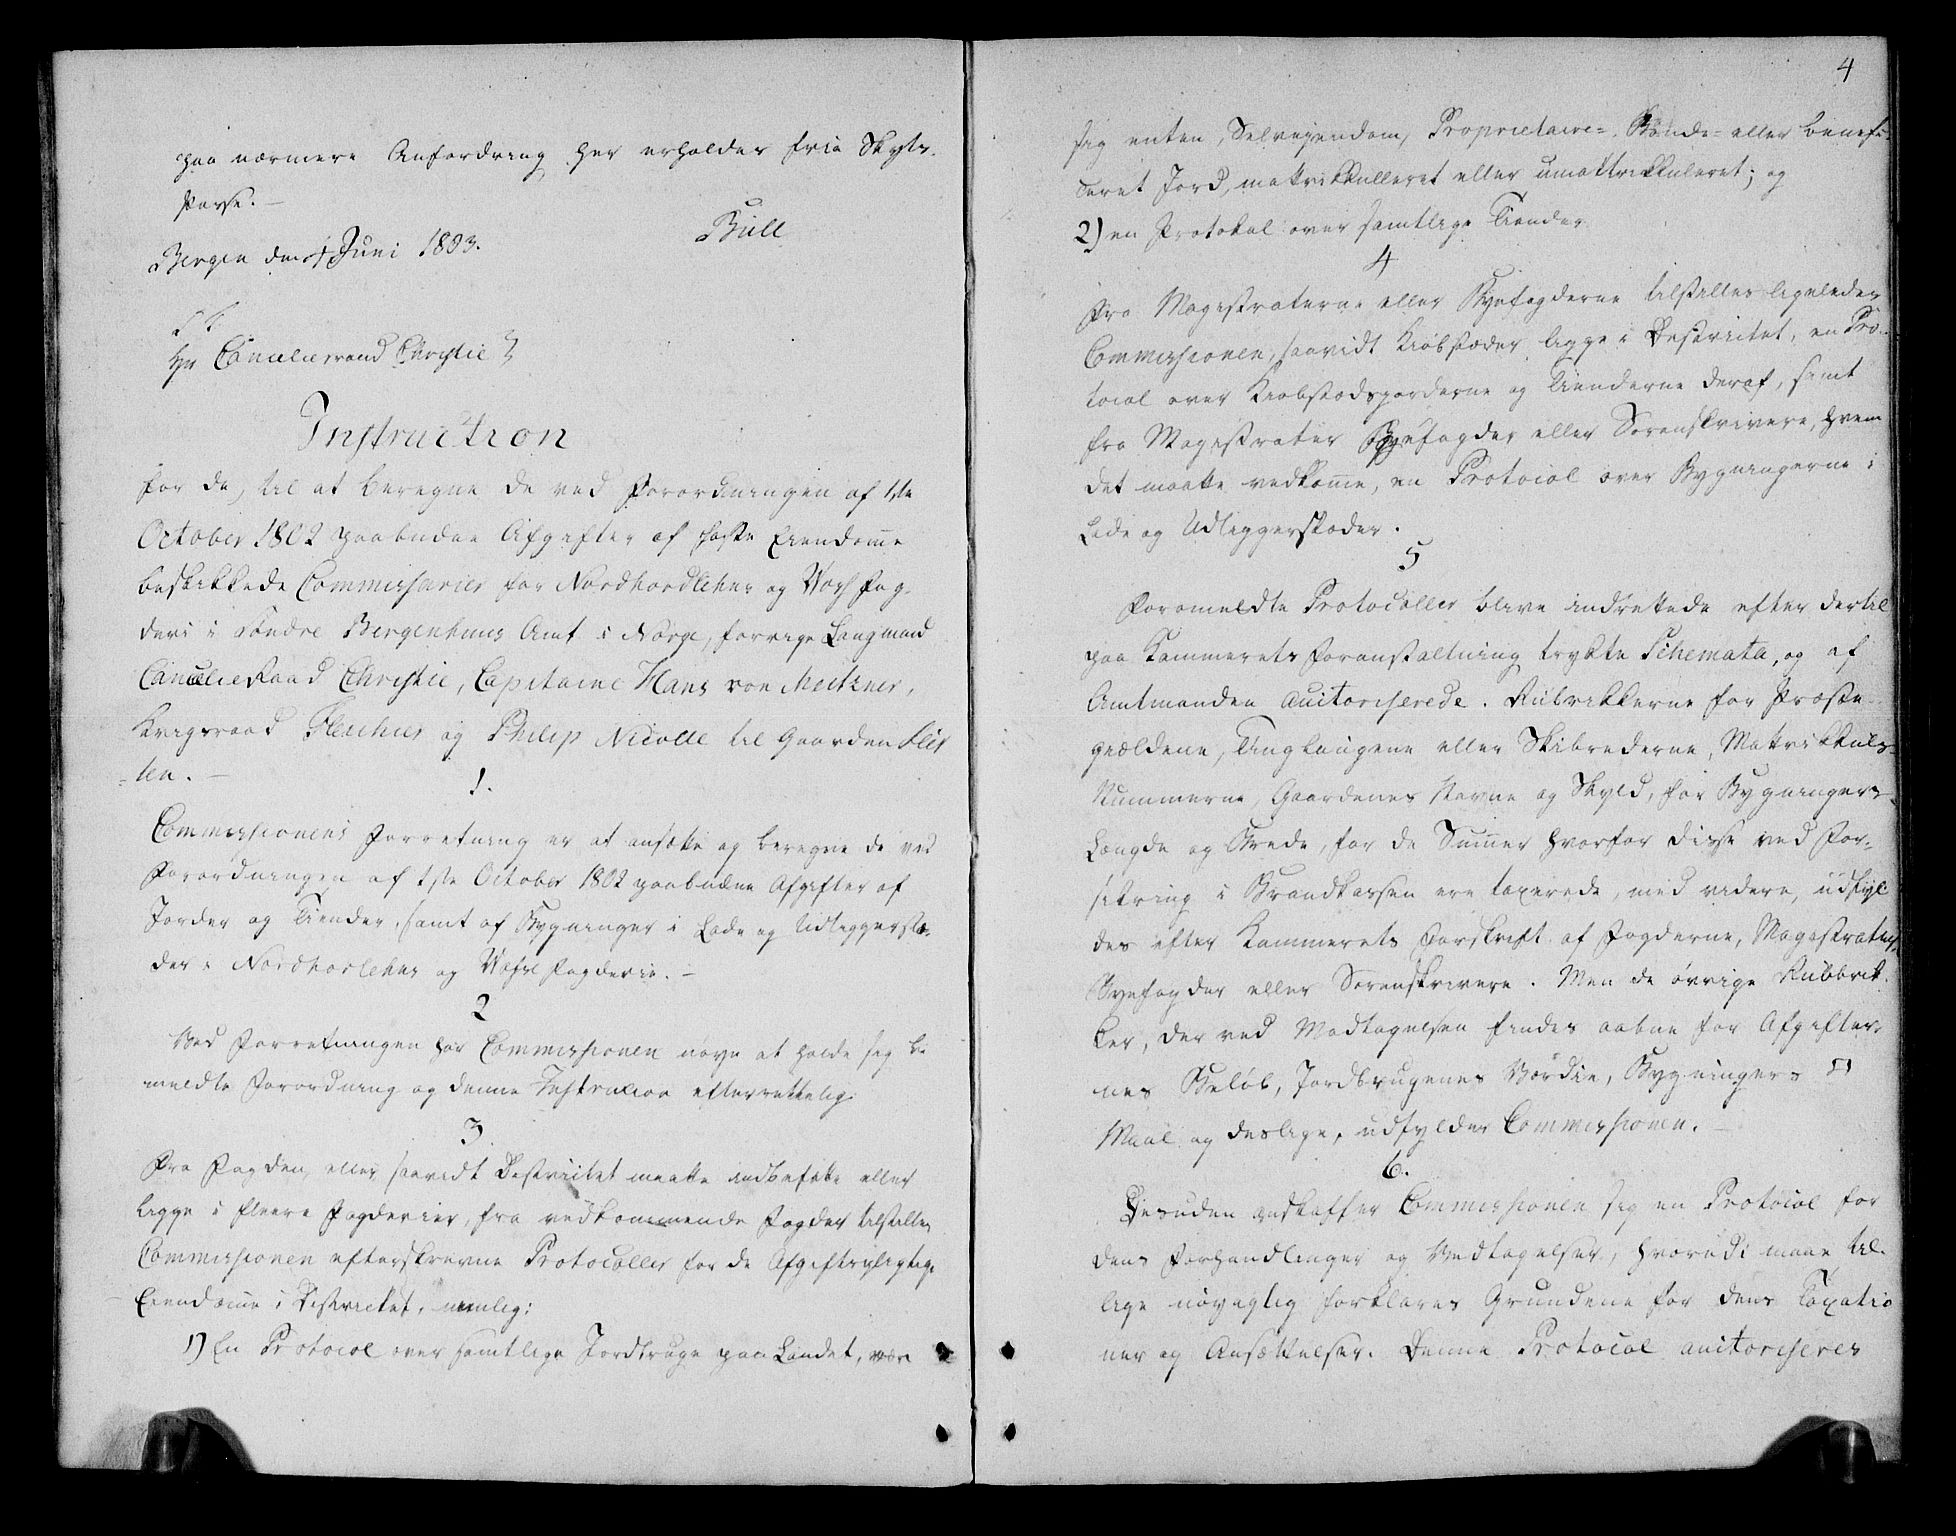 paa nærmere Anfordring her erholder frie Skyds-
Passe. –
Bergen den 4 Juni 1803.
Bull
S. T.
Hr Cancelieraad Christie
Instruction
for de, til at beregne de ved Forordningen af 1ste
October 1802 paabudne Afgifter af faste Eiendomme
beskikkede Commissarier for Nordhordlehns og Vors Fog-
deri i Søndre Bergenhuus Amt i Norge, forrige Laugmand
Cancelie Raad Christie, Capitaine Hans von Meitzner,
Krigsraad Fleischer og Philip Nicolle til Gaarden
ten. –
1.
Commissionens Forretning er at ansætte og beregne de ved
Forordningen af 1ste October 1802 paabudne Afgifter af
Jorder og Tiender, samt af Bygninger i Lade og Udliggerstæ-
der i Nordhorlehns og Vosse Fogderie. –
2
Ved Forretningen har Commissionen nøye at holde sig be-
meldte Forordning og denne Instruction efterrettelig.
3
Fra Fogden, eller saavidt Districtet maatte indbefatte eller
ligge i fleere Fogderier, fra vedkommende Fogder tilstilles
Commissionen efterskrevne Protocoller for de Afgiftspligtige
Eiendomme i Districtet, nemlig:
1) En Protocol over samtlige Jordbruge paa Landet, være
4
sig enten, Selveiendom, Proprietaire-, Bønde- eller benefi-
ceret Jord, matrikkulleret eller umattrikkuleret; og
2) en Protokol over samtlige Tiender
4
Fra Magistraterne eller Byefogderne tilstilles ligeledes
Commissionen, saavidt Kiøbstæder ligge i Districtet, en Pro-
tocol over Kiøbstadsjorderne og Tienderne deraf, samt
fra Magistrater Byefogder eller Sorenskrivere, hvem
det maatte vedkomme, en Protocol over Bygningerne i
Lade og Udliggerstæder.
5
Formeldte Protocoller blive indrettede efter dertil
paa Kammerets Foranstaltning trykte Schemata, og af
Amtmanden auctoriserede. Rubrikkerne for Præste-
gieldene, Tinglaugene eller Skibrederne, Matrikkuls-
Nummerne, Gaardenes Navne og Skyld, for Bygningers
Længde og Brede, for de Summer hvorfor disse ved For-
sikring i Brandkassen ere taxerede, med videre, udfyl-
des efter Kammerets Forskrift af Fogderne, Magistrater,
Byefogder eller Sorenskrivere. Men de øvrige Rubbrik-
ker, der ved Modtagelsen findes aabne for Afgifter-
nes Beløb, Jordbrugenes Værdie, Bygningers □
Maal og deslige, udfylder Commissionen. –
6.
Desuden anskaffer Commissionen sig en Protocol for
dens Forhandlinger og Vedtagelser, hvorudi maae til-
lige nøyagtig forklares Grundene for dens Taxatio-
ner og Ansættelser. Denne Protocol auctoriseres